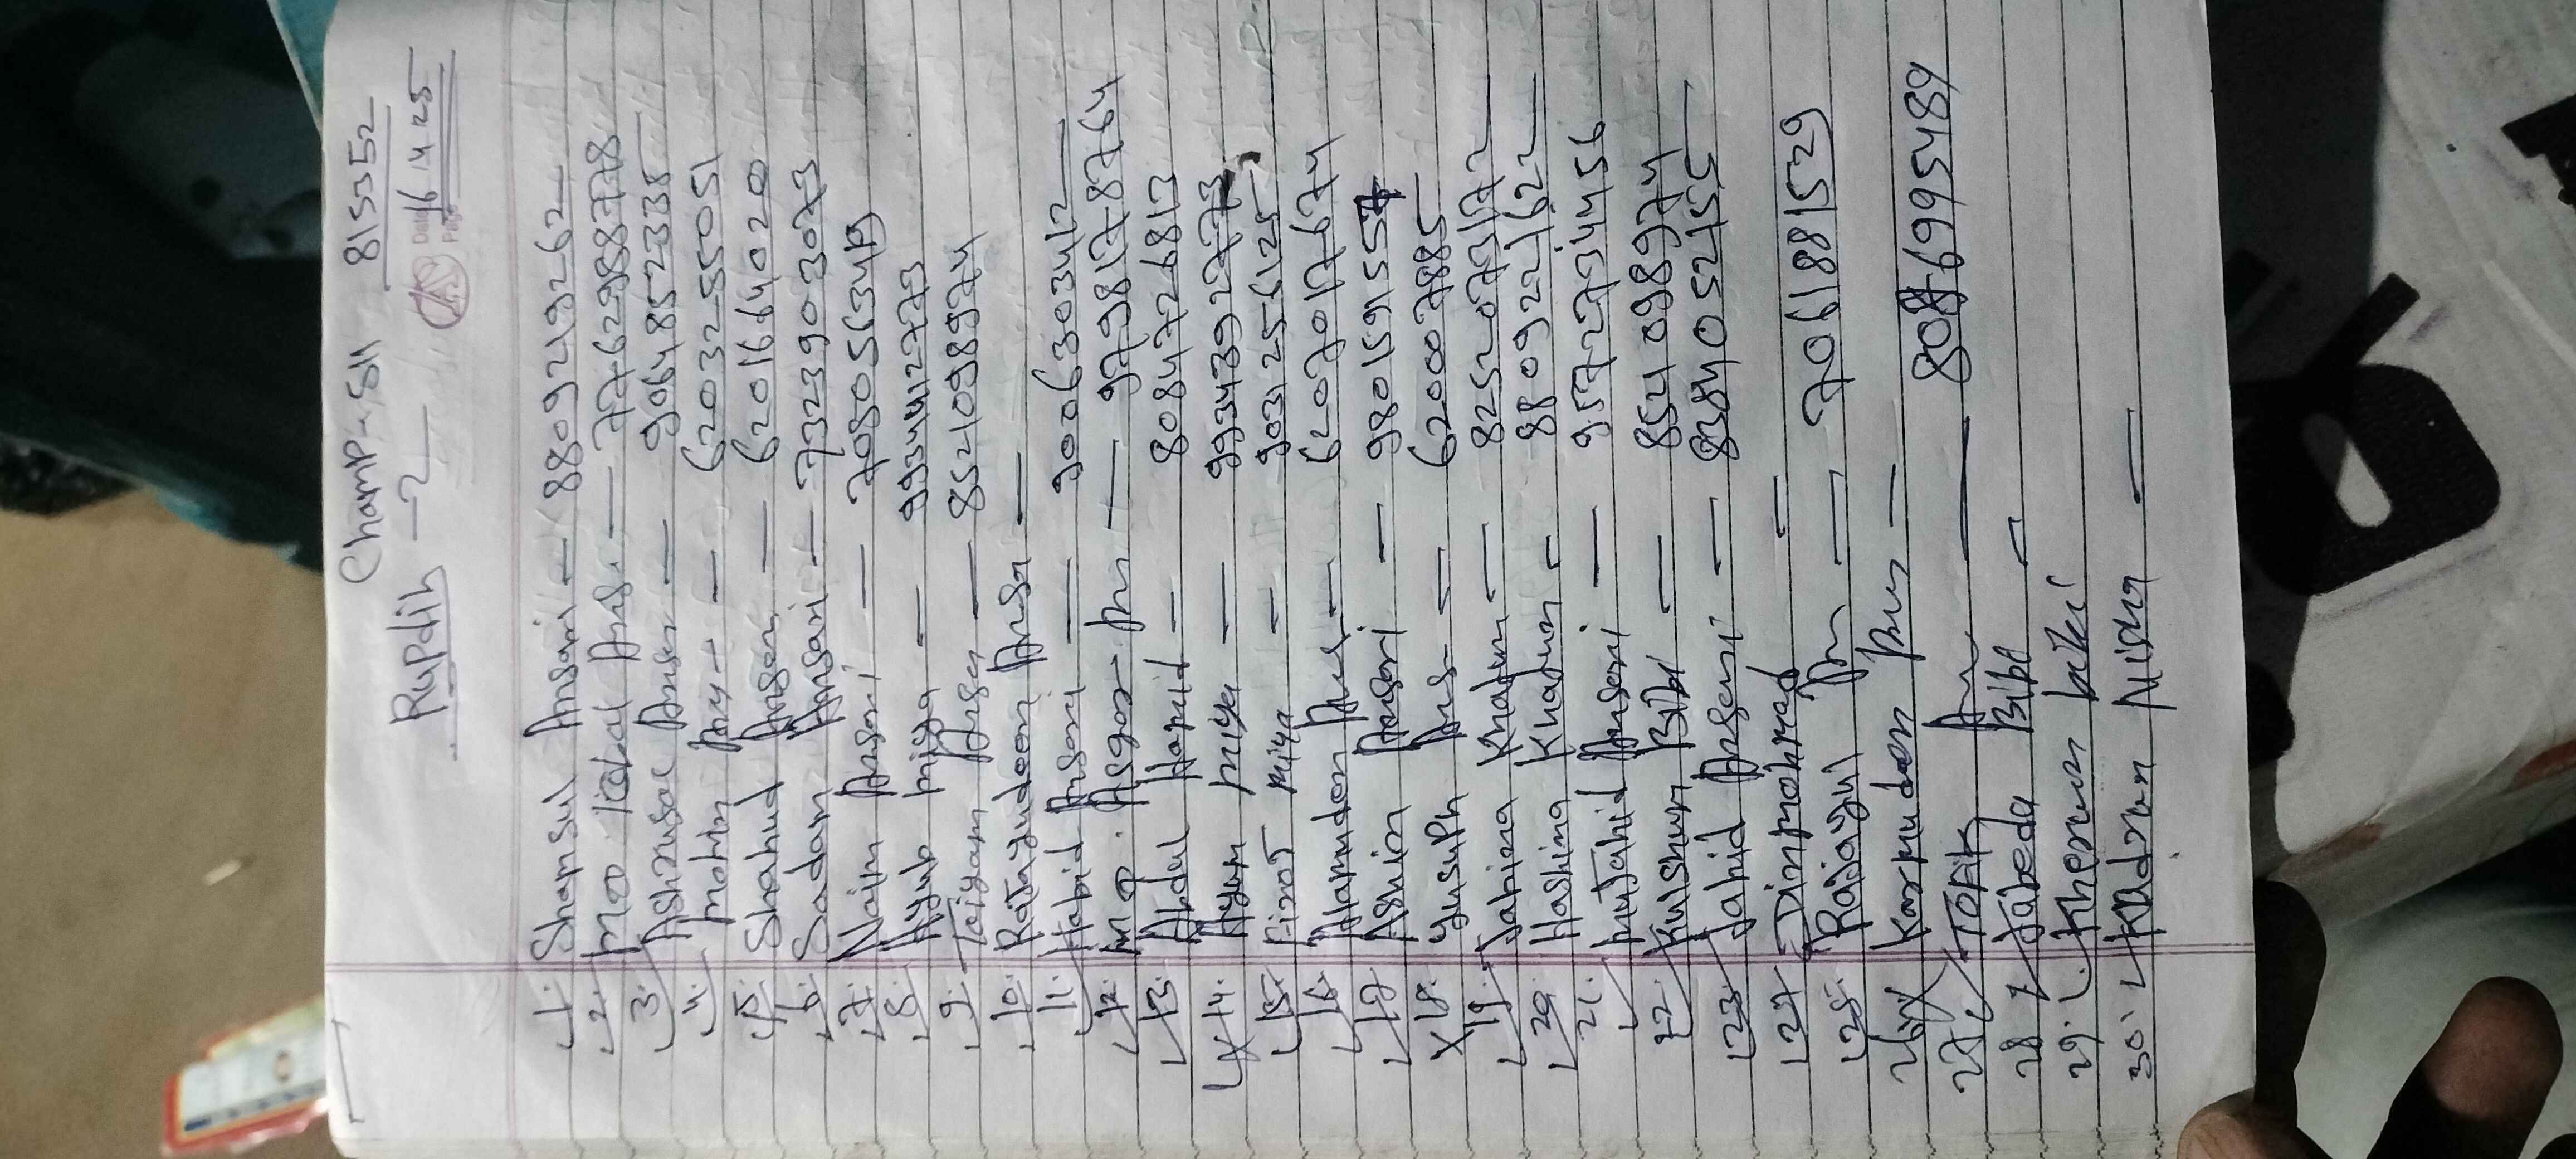 Champ-SH 815352
Rupdih - 2 16.4.25
1. Shamsul Ansari - 8809219262
2. MD. Iqbal Ansa - 7762988778
3. Ashrusal Anser - 9064852338
4. Mohin Any - 6203255051
5. Shahud Anser - 6201664020
6. Sadam Ansari - 7323903073
7. Naim Ansari - 7080563419
8. Ayub miya - 9934412773
9. Taiyam Ansar - 8521098974
10. Ratayudeen Ansa -
11. Habid Ansari - 9006303412
12. MD. Asgar Ans - 9798178764
13. Abdul Hamid - 8084726813
14. Ayum miya - 9934392773
15. Firoj miya - 9031256125
16. Alamuden Ans - 6207017674
17. Ashin Ansari - 9801591557
18. Yusuph Ans - 620007885
19. Jabina Khatun - 8252073172
20. Hashina Khatun - 8809222162
21. Mujahid Ansari - 9572734456
22. Kulshun Bibi - 8521098974
23. Jahid Ansari - 8384052155
24. Dinmohmad -
25. Rajayul An - 7061881529
26. Karmuden Ans -
27. Tofik An - 8086995489
28. Jabeda Bibi -
29. Kherun bibi
30. Kadrun Nisha -